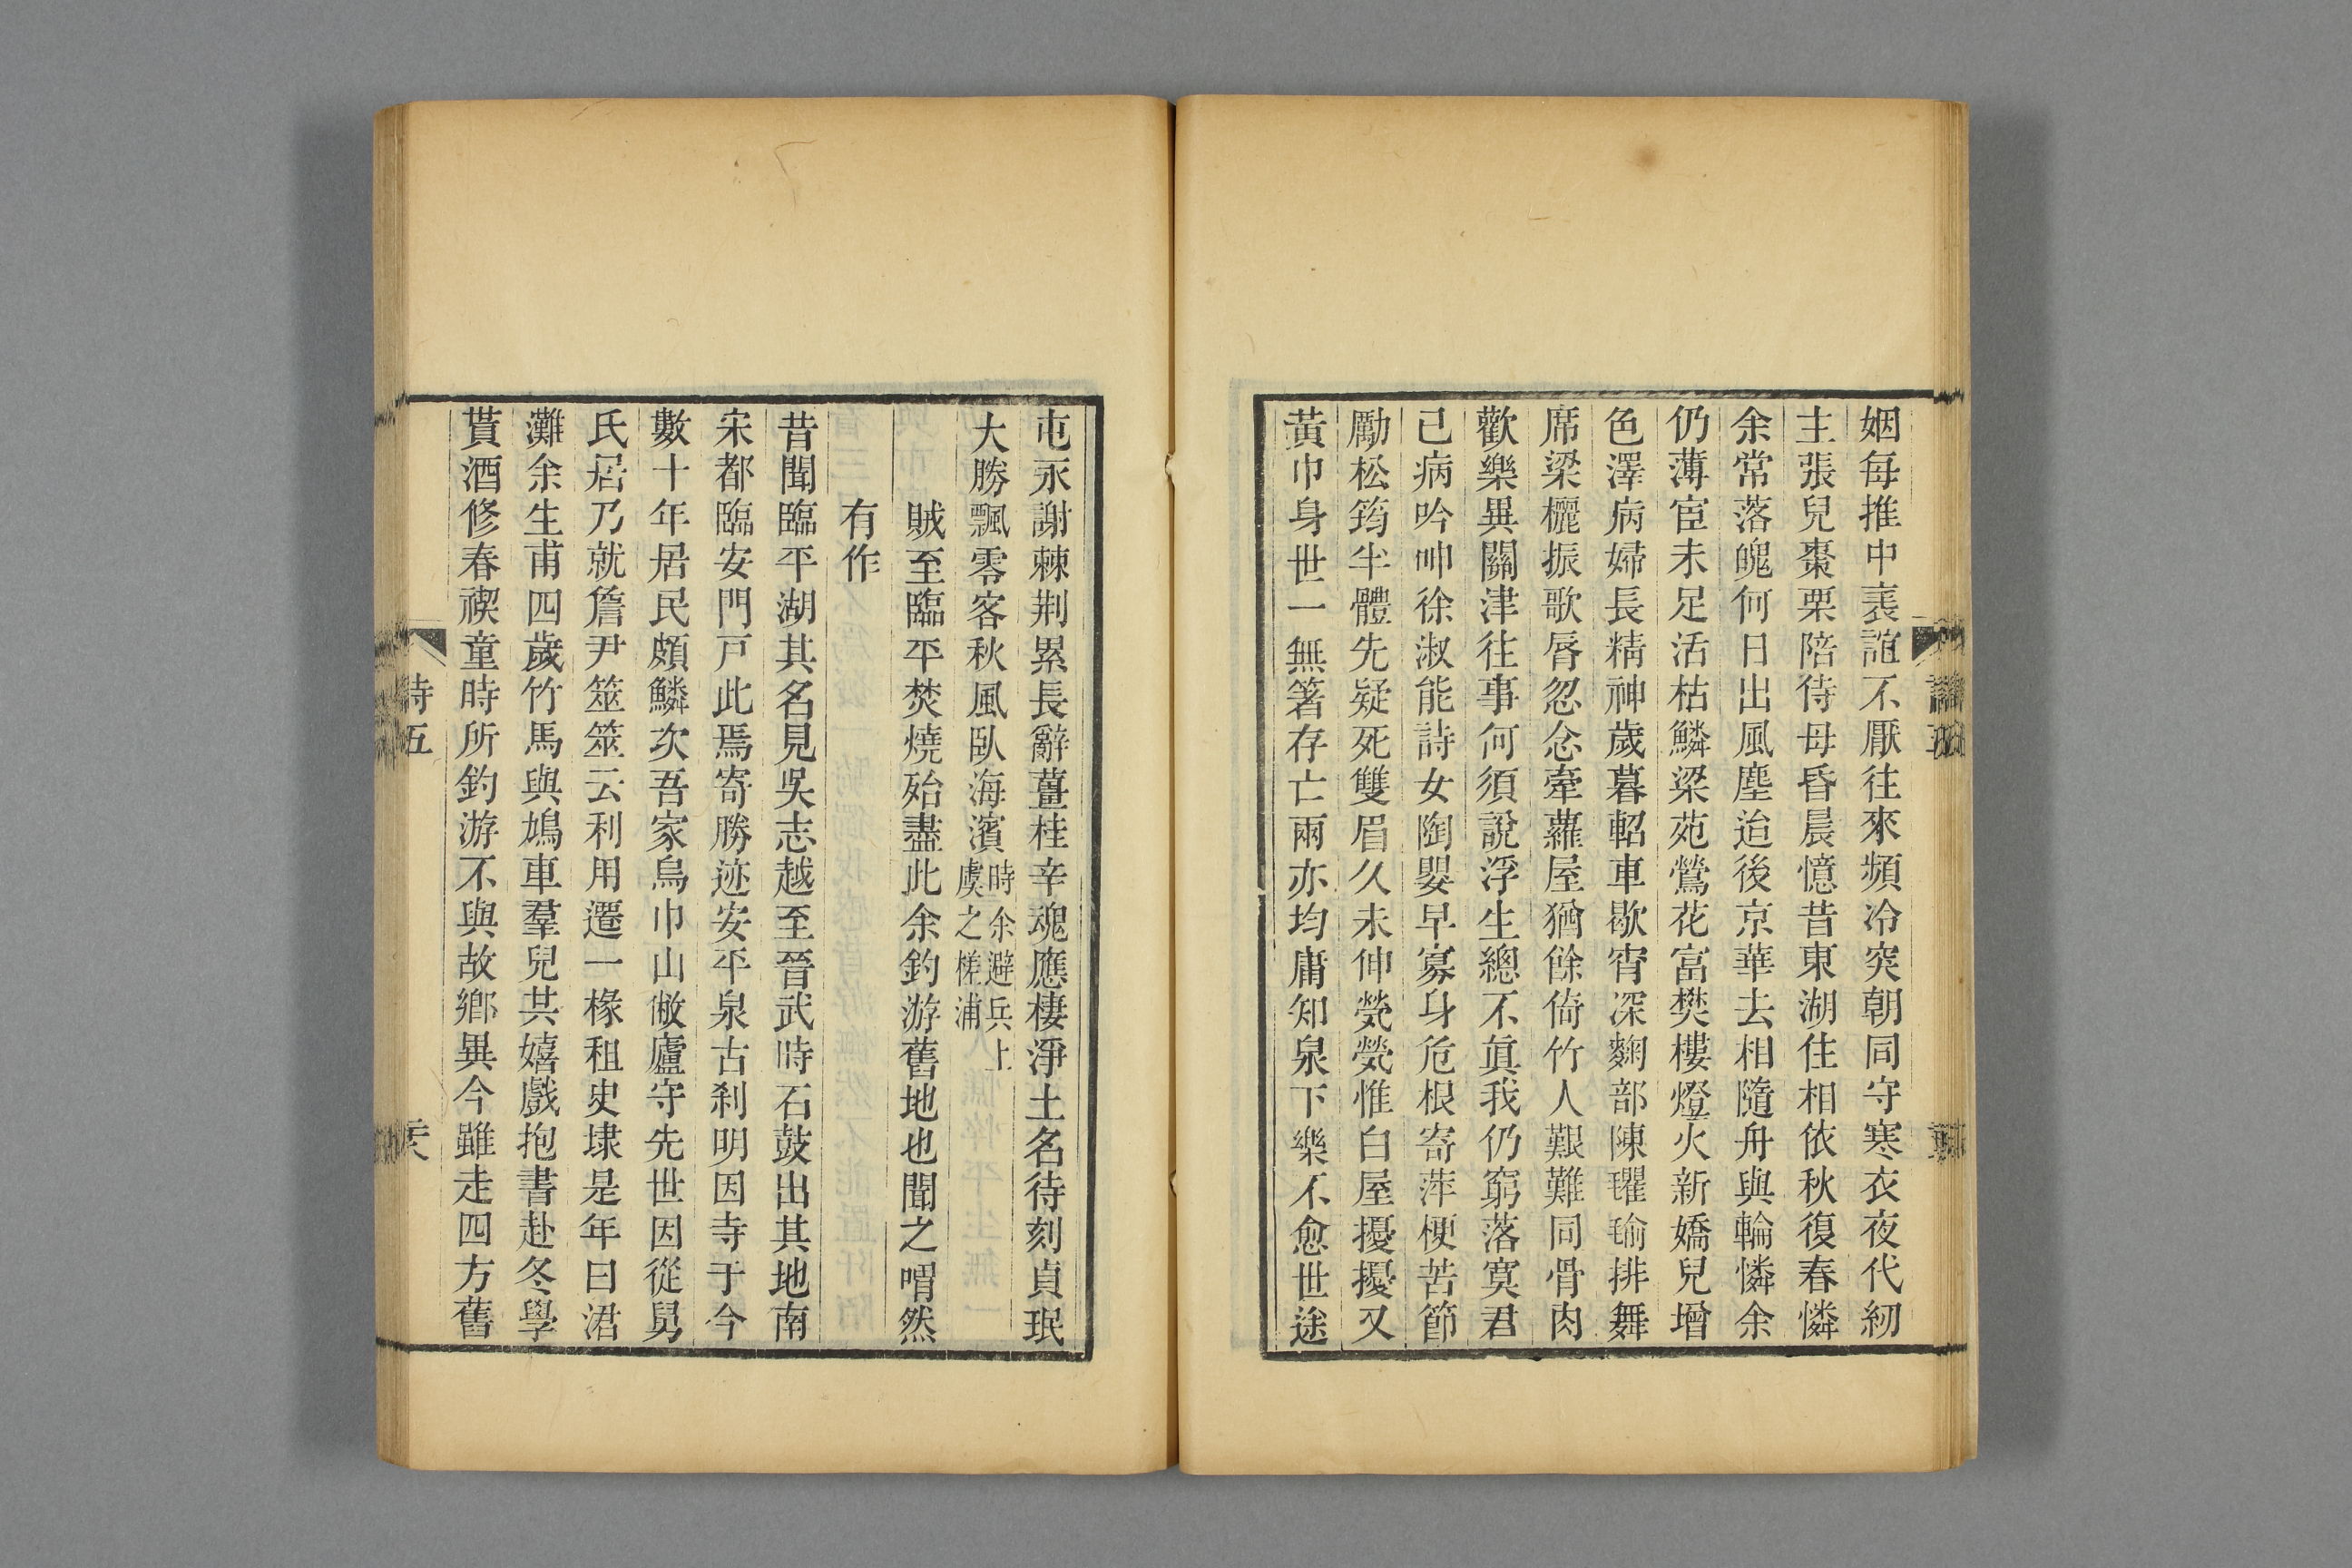 姻每推中表誼不厭往來頻冷突朝同守寒衣夜代紉
主張兒棗栗陪侍母昏晨憶昔東湖住相依秋復春憐
余常落魄何日出風塵迨後京華去相隨舟與輪憐余
仍薄宦未足活枯鱗梁苑鶯花富樊樓燈火新嬌兒增
色澤病婦長精神歲暮軺車歇宵深麴部陳氍毹排舞
席梁欐振歌脣忽忿牽蘿屋猶餘倚竹人艱難同骨肉
歡樂異關津往事何須說浮生總不眞我仍窮落寞君
已病吟呻徐淑能詩女陶嬰早寡身危根寄萍梗苦節
勵松筠半體先疑死雙眉久未伸煢煢惟白屋擾擾又
黃巾身世一無箸存亡兩亦均庸知泉下樂不愈世途
屯永謝棘荆累長辭薑桂辛魂應棲淨土名待刻貞珉
大勝飄零客秋風臥海濱
時余避兵上
虞之槎浦
賊至臨平焚燒殆盡此余釣游舊地也聞之喟然
有作
昔聞臨平湖其名見吳志越至晉武時石鼓出其地南
宋都臨安門戸此焉寄勝迹安平泉古刹明因寺于今
數十年居民頗鱗次吾家烏巾山敝廬守先世因從舅
氏居乃就詹尹筮筮云利用遷一椽租史埭是年曰涒
灘余生甫四歲竹馬與鳩車羣兒共嬉戲抱書赴冬學
貰酒修春禊童時所釣游不與故鄉異今雖走四方舊
詩五